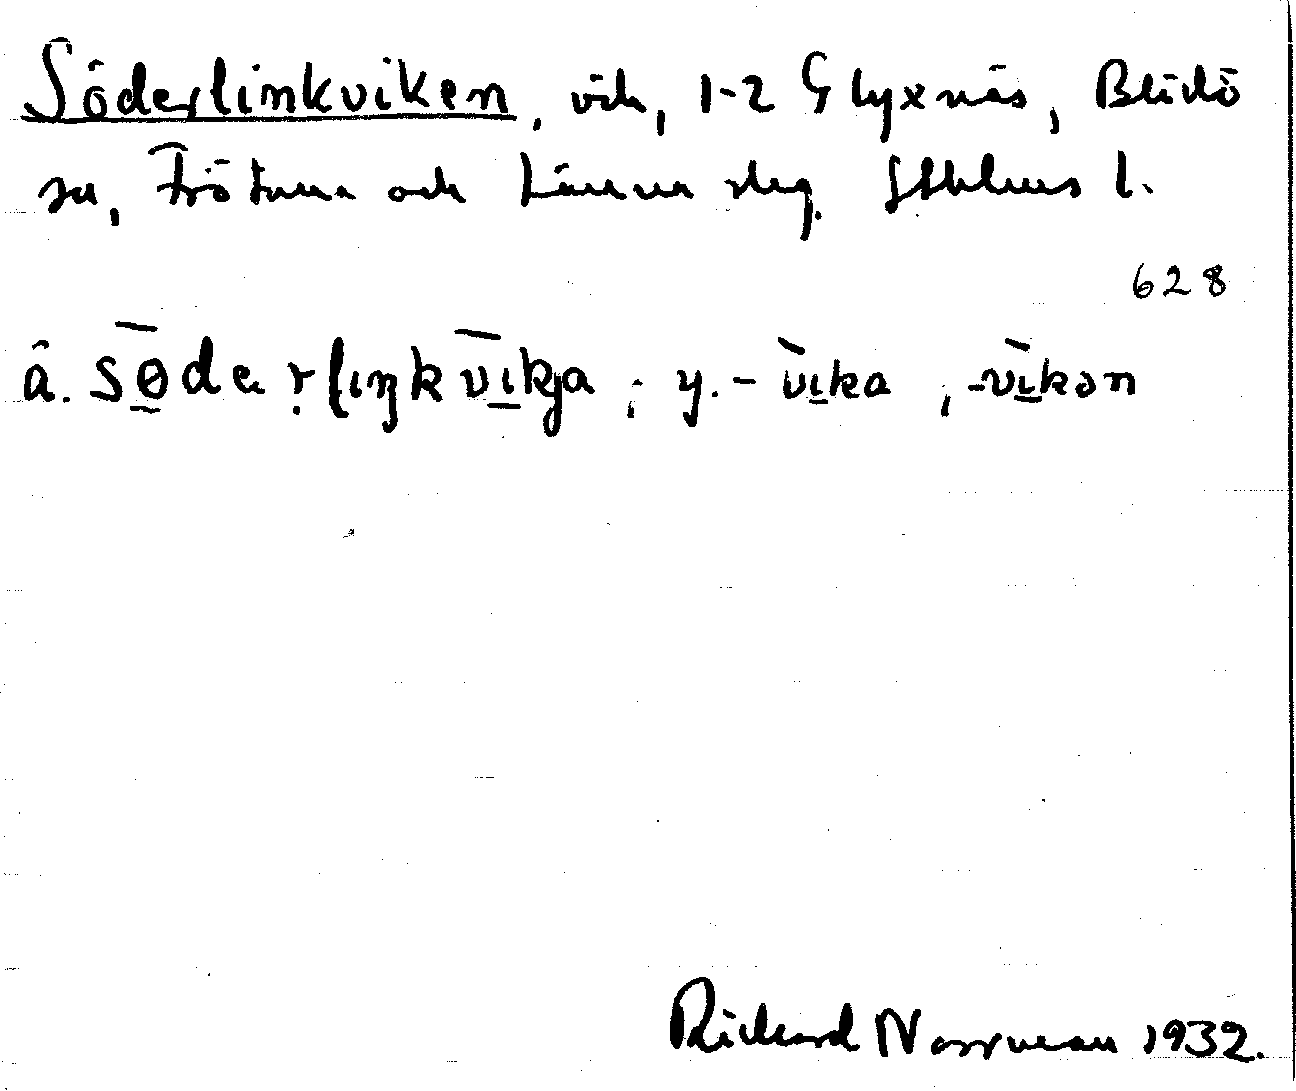 Söderlinkviken, vik, 1-2 Glyxnäs, Blidö
sn, Frötuna och Länna slg. Sthlms l.
628
å. södärliŋkvikja ; y. -vika , -vikən
Rickard Norrman 1932.